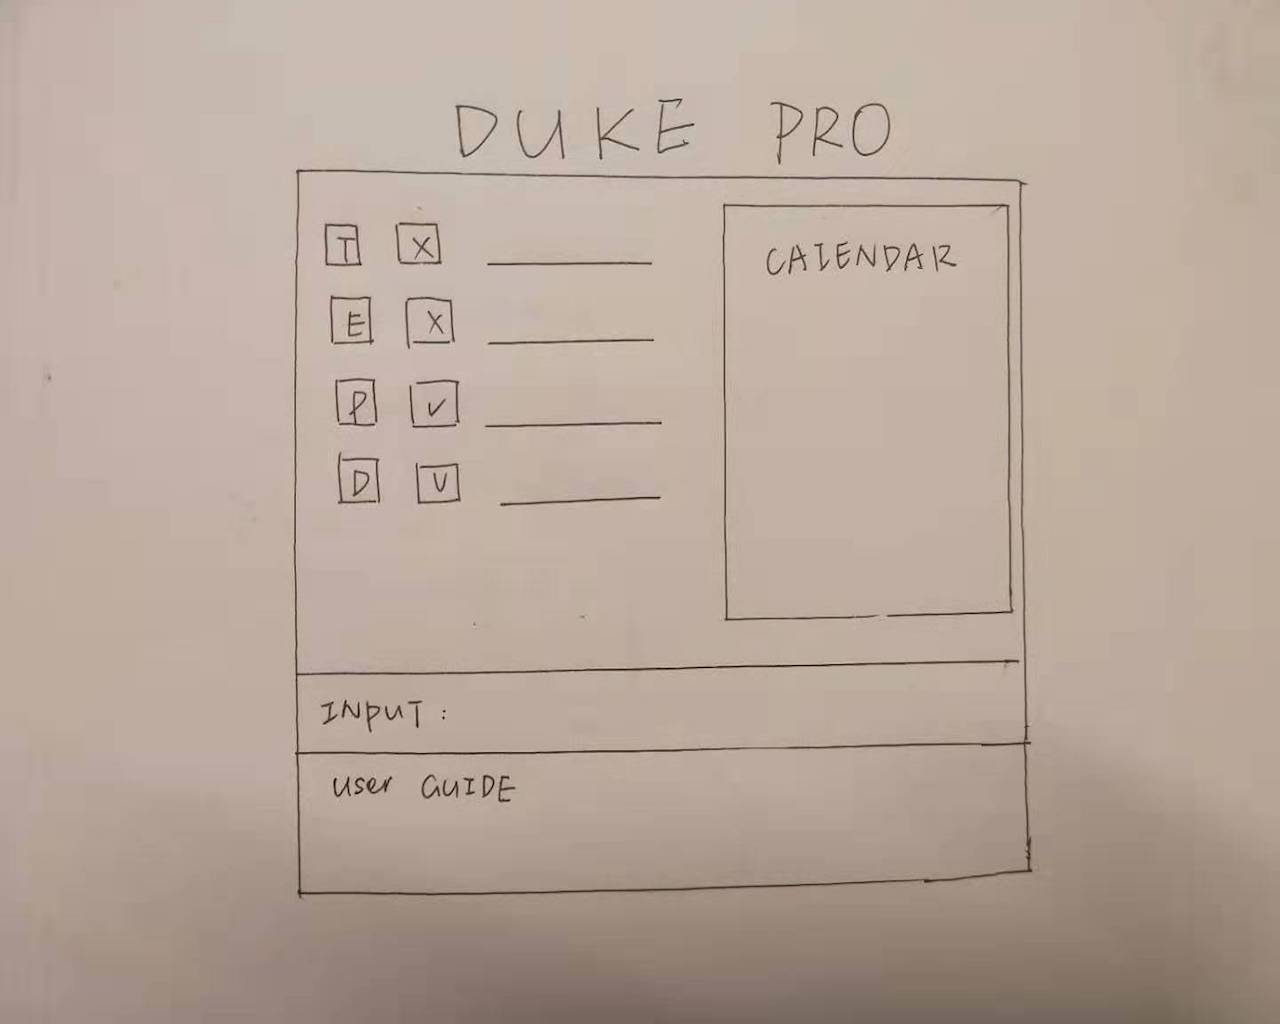 DUKE PRO
T X
E X
P V
D V
CAIENDAR
INPUT :
User GUIDE